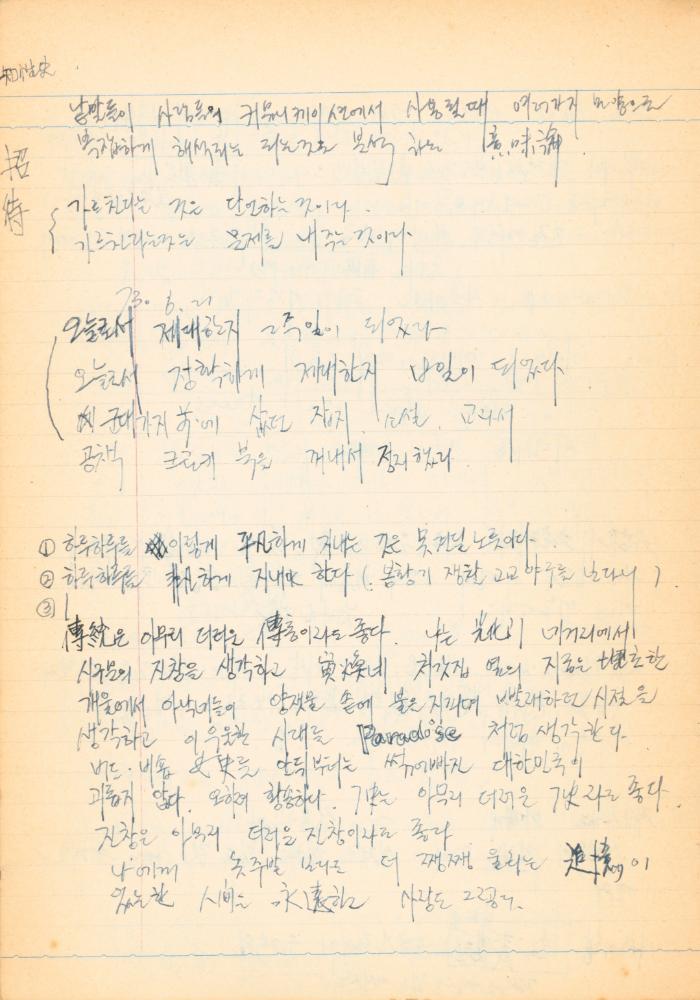 知性史
낱말들이 사람들의 커뮤니케이션에서 사용될때 여러가지 모양으로
복잡하게 해석되는 되는것을 분석 하는 意味論
招待
가르친다는 것은 단언하는 것이다.
가르친다는것은 문제를 내주는것이다.
73. 6. 21
오늘로서 제대한지 2주일이 되었다
오늘로서 정확하게 제대한지 일이 되었다.
군대가기 前에 샀던 잡지, 소설, 교과서
공책 크로키 북을 꺼내서 정리했다.
① 하루하루를 이렇게 平凡하게 지내는 것은 못견딜 노릇이다.
② 하루하루를 非凡하게 지내야 한다 (봉황기 쟁탈 고교야구를 보다니)
③
傳統은 아무리 더러운 傳統이라도 좋다. 나는 光化門 네거리에서
시구문의 진창을 생각하고 寅煥네 처갓집 옆의 지금은 埋立한
개울에서 아낙네들이 양잿물 솥에 불을 지피며 빨래하던 시절을
생각하고 이 우울한 시대를 Paradise 처럼 생각한다.
버드·비숍 女史를 안 뒤부터는 썩어빠진 대한민국이
괴롭지 않다. 오히려 황송하다. 歷史는 아무리 더러운 歷史라도 좋다.
진창은 아무리 더러운 진창이라도 좋다
나에게 놋주발 보다도 더 쨍쨍 울리는 追憶이
있는한 人間은 永遠하고 사랑도 그렇다.